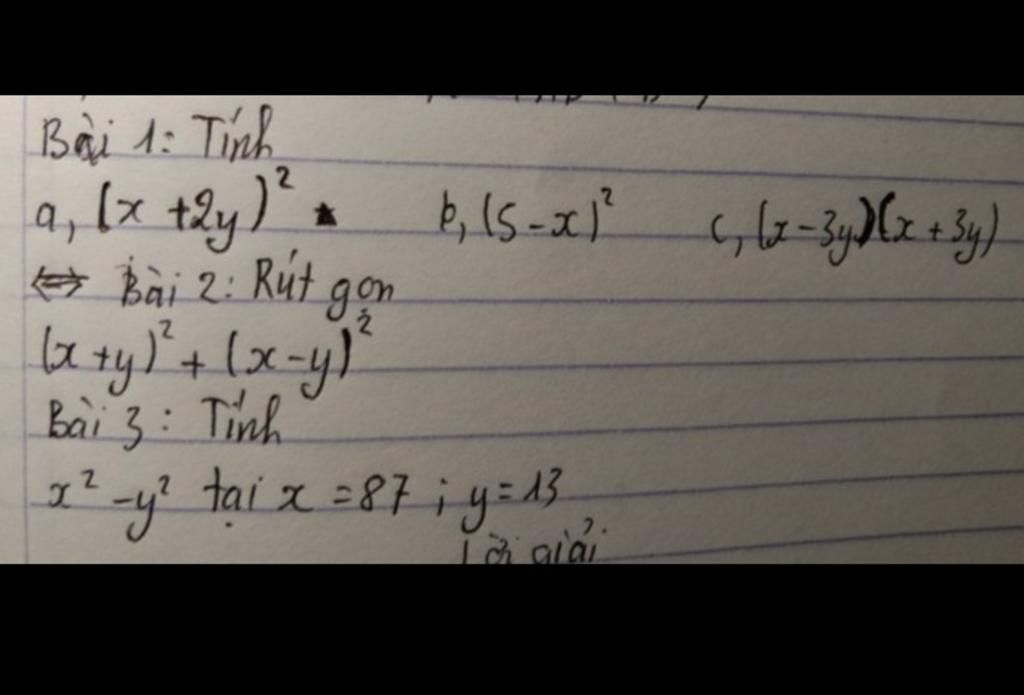 Bài 1: Tính
a, (x + 2y)² b, (5 - x)² c, (x - 3y)(x + 3y)
⇔ Bài 2: Rút gọn
(x + y)² + (x - y)²
Bài 3: Tính
x² - y² tại x = 87 ; y = 13
Lời giải